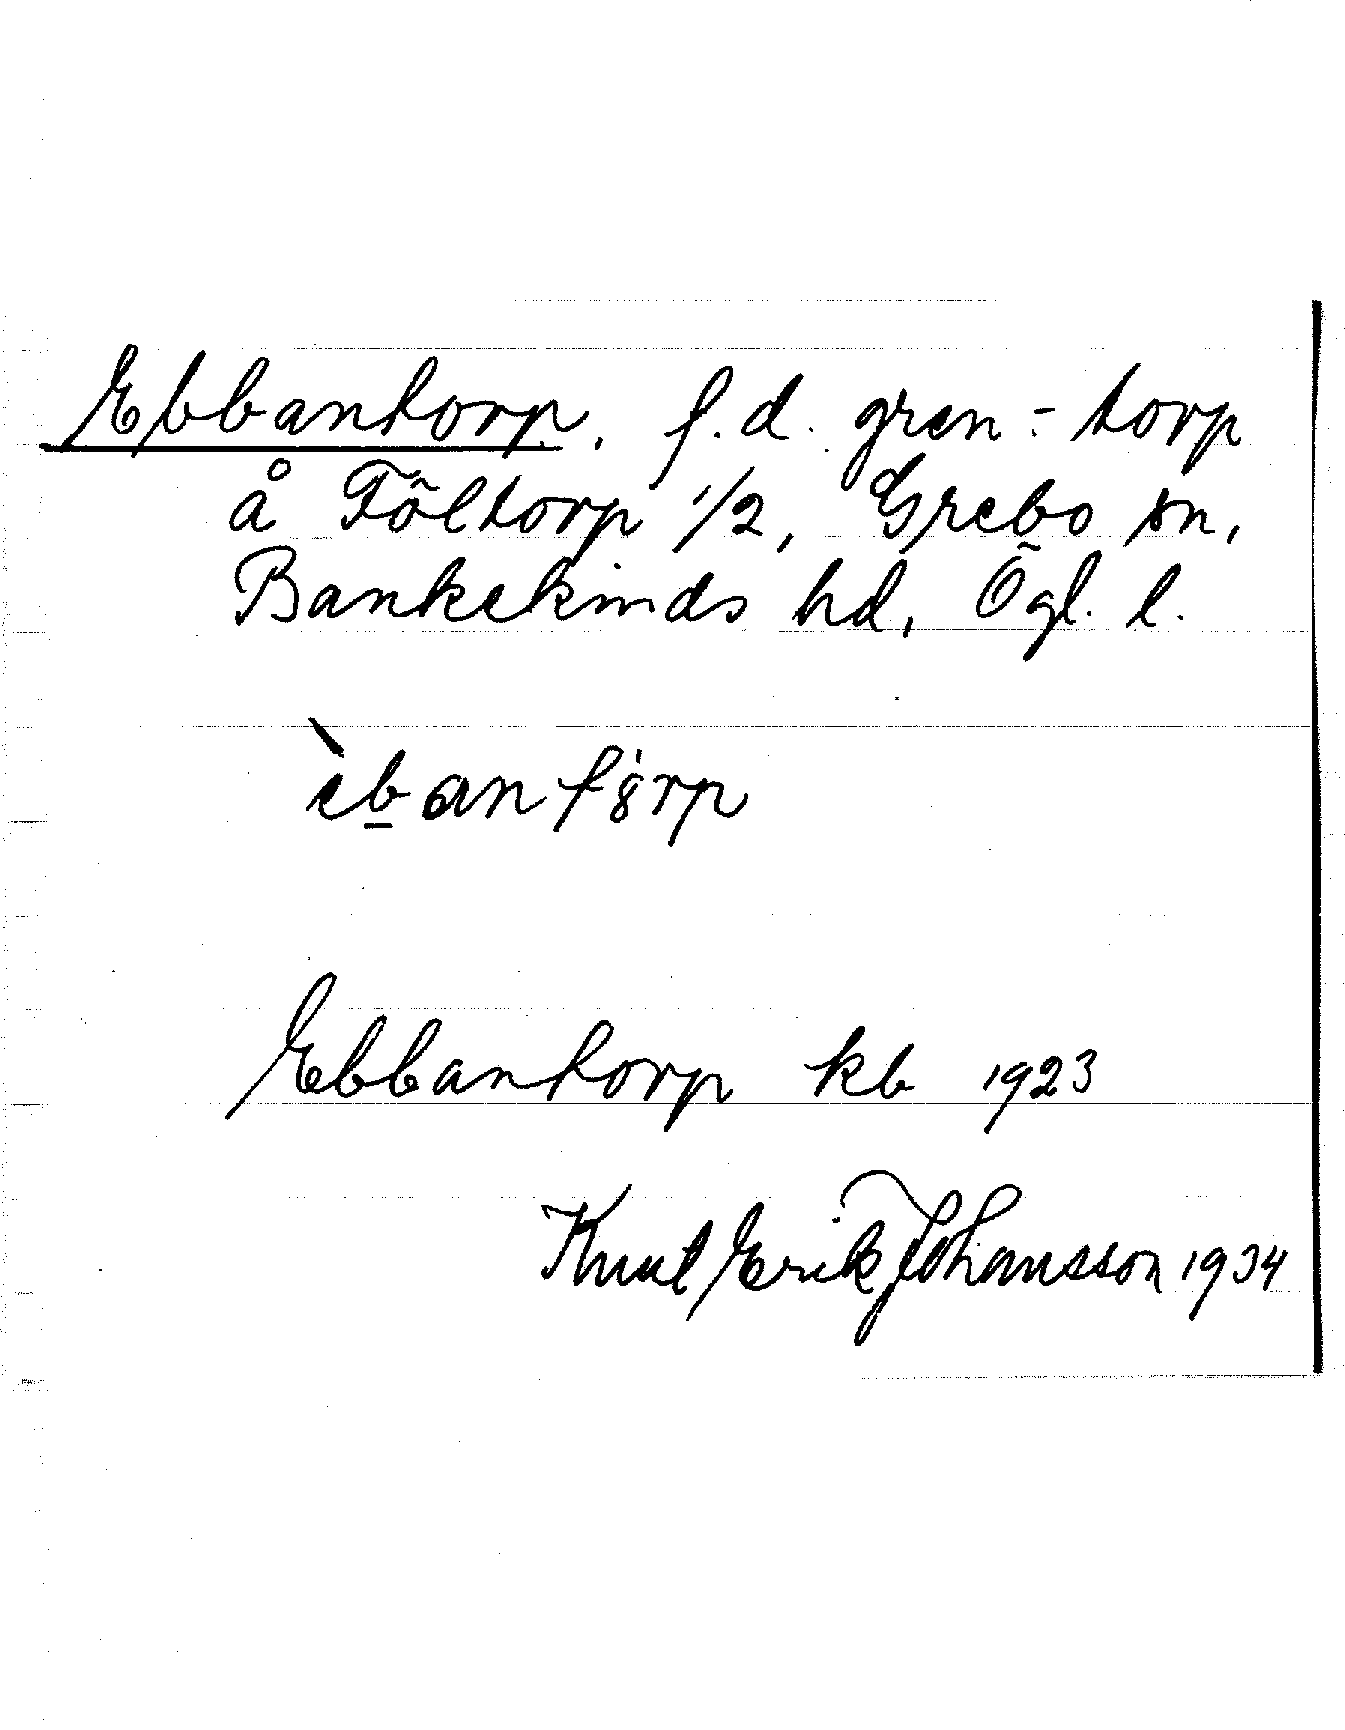 Ebbantorp, f.d. gren.-torp
å Föltorp 1/2, Grebo sn,
Bankekinds hd, Ögl. l.
Ebbantorp kb 1923
Knut Erik Johansson 1934